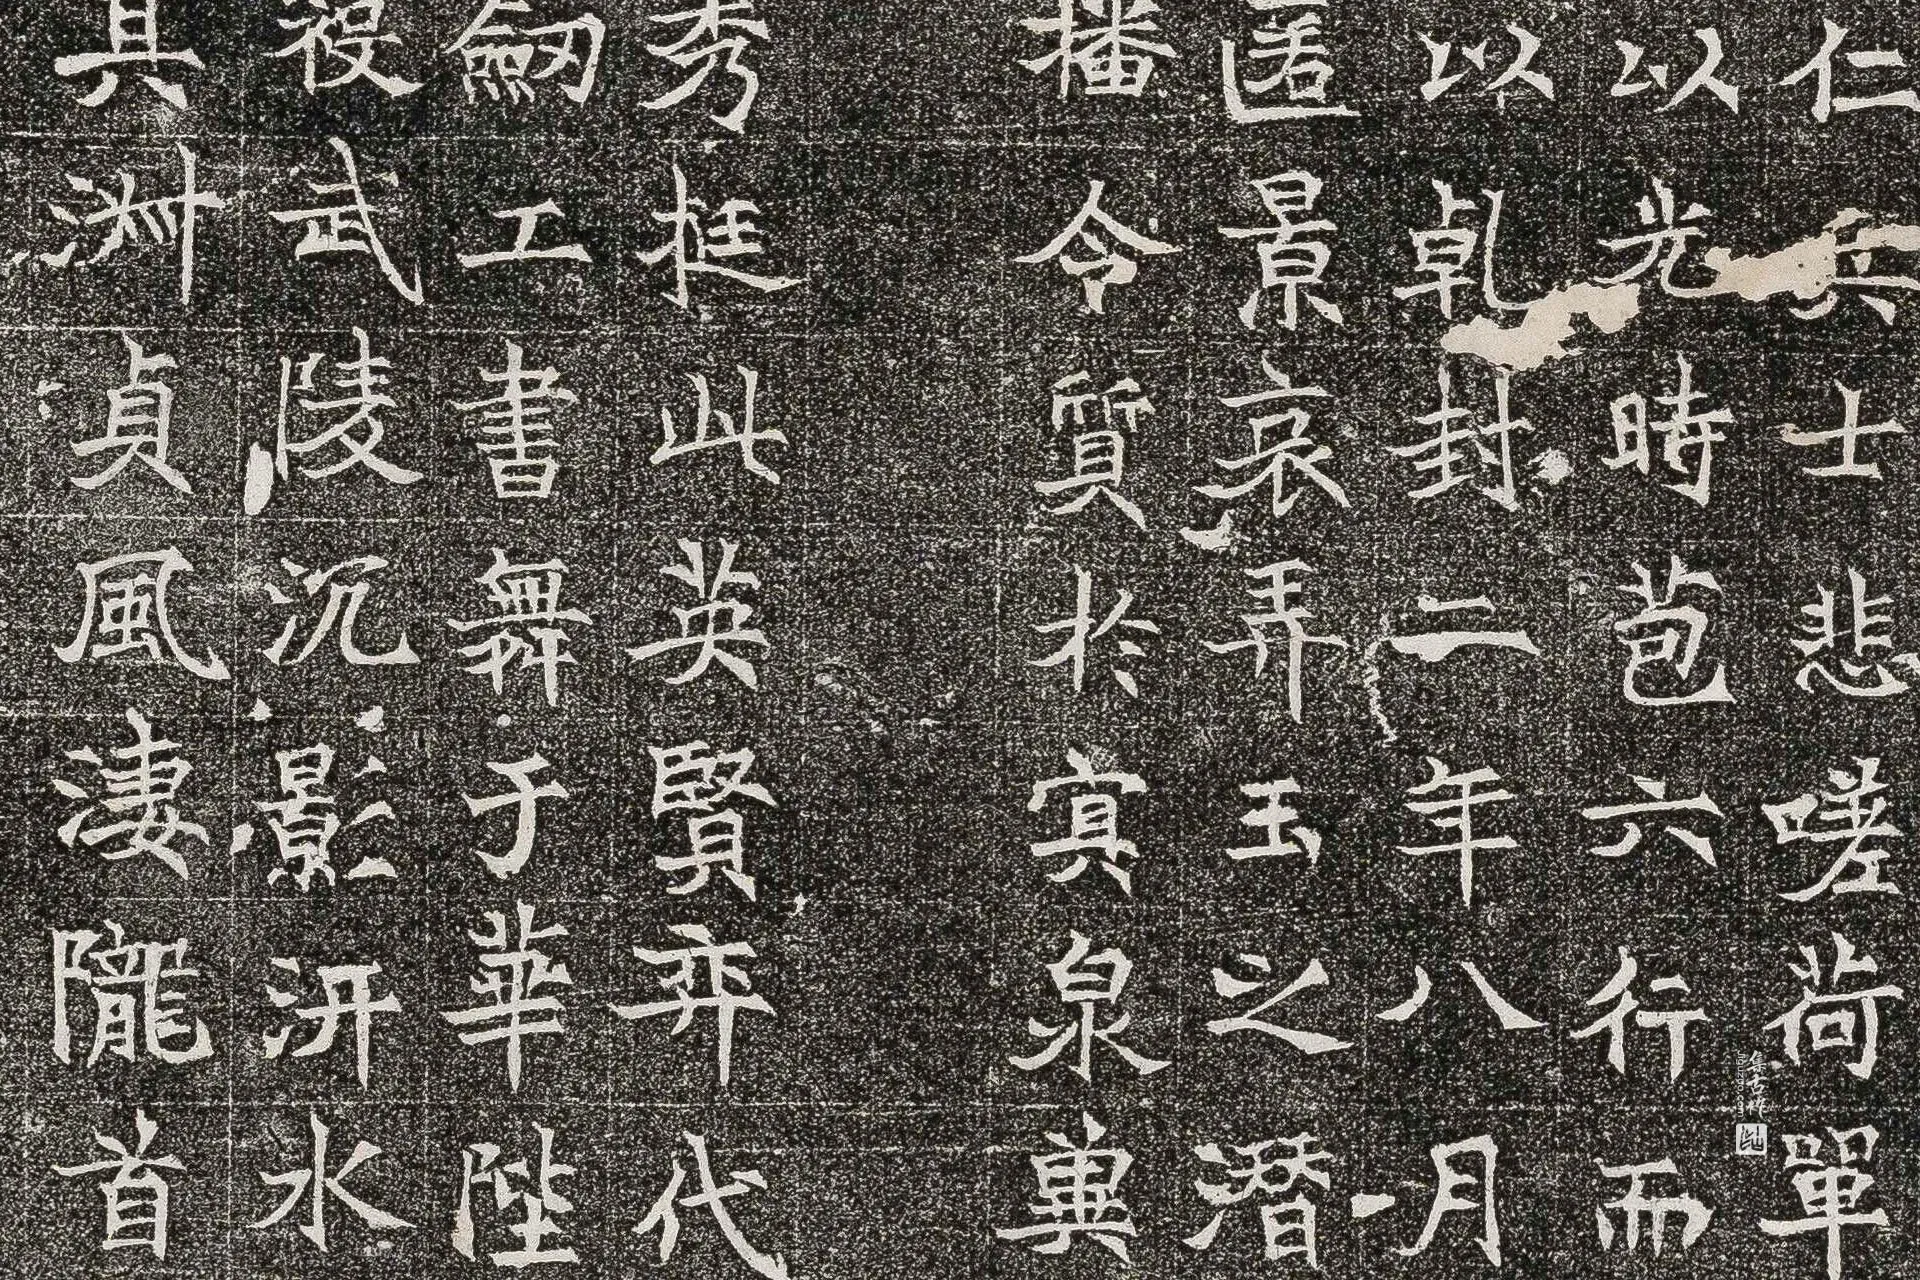 仁兵士悲嗟荷單
以光時苞六行而
以乹封二年八月
匿景哀弄玉之潛
播令質於寘泉冀
秀挺此英賢弈代
劒工書舞于華陛
祲武陵沉影汧水
具渊貞風淒隴首
集古梓